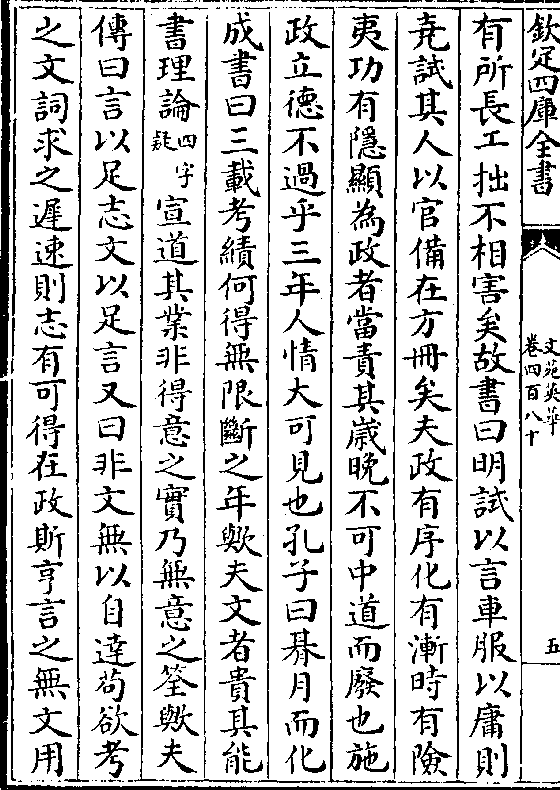 欽定四庫全書
文苑英華
卷四百八十
五
有所長工拙不相害矣故書曰明試以言車服以庸則
堯試其人以官備在方冊矣夫政有序化有漸時有險
夷功有隱顯為政者當責其歲晚不可中道而廢也施
政立德不過乎三年人情大可見也孔子曰朞月而化
成書曰三載考績何得無限斷之年歟夫文者貴其能
書理論四字疑宣道其業非得意之實乃無意之筌歟夫
傳曰言以足志文以足言又曰非文無以自達苟欲考
之文詞求之遲速則志有可得在政斯亨言之無文用